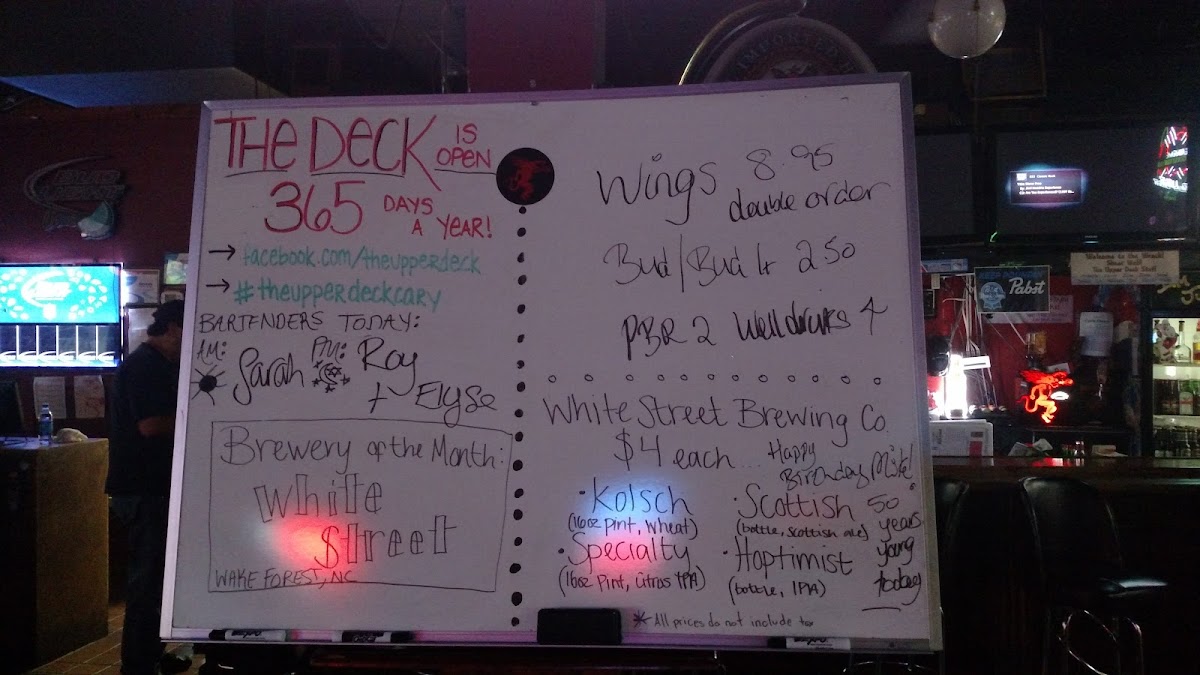 THE DECK IS OPEN
365 DAYS A YEAR!
→ facebook.com/theupperdeck
→ #theupperdeckcary
BARTENDERS TODAY:
AM: Sarah PM: Roy
+ Elyse
Brewery of the Month:
White
Street
WAKE FOREST, NC
Wings 8.95
double order
Bud/Bud Lt 2.50
PBR 2 Well drinks 4
White Street Brewing Co.
$4 each...
Happy
Birthday Mike!
50
years
young
today
• Kolsch
(16oz pint, wheat)
• Scottish
(bottle, scottish ale)
• Specialty
(16oz Pint, Citrus IPA)
• Hoptimist
(bottle, IPA)
* All prices do not include tax
IMPORTED
Pabst